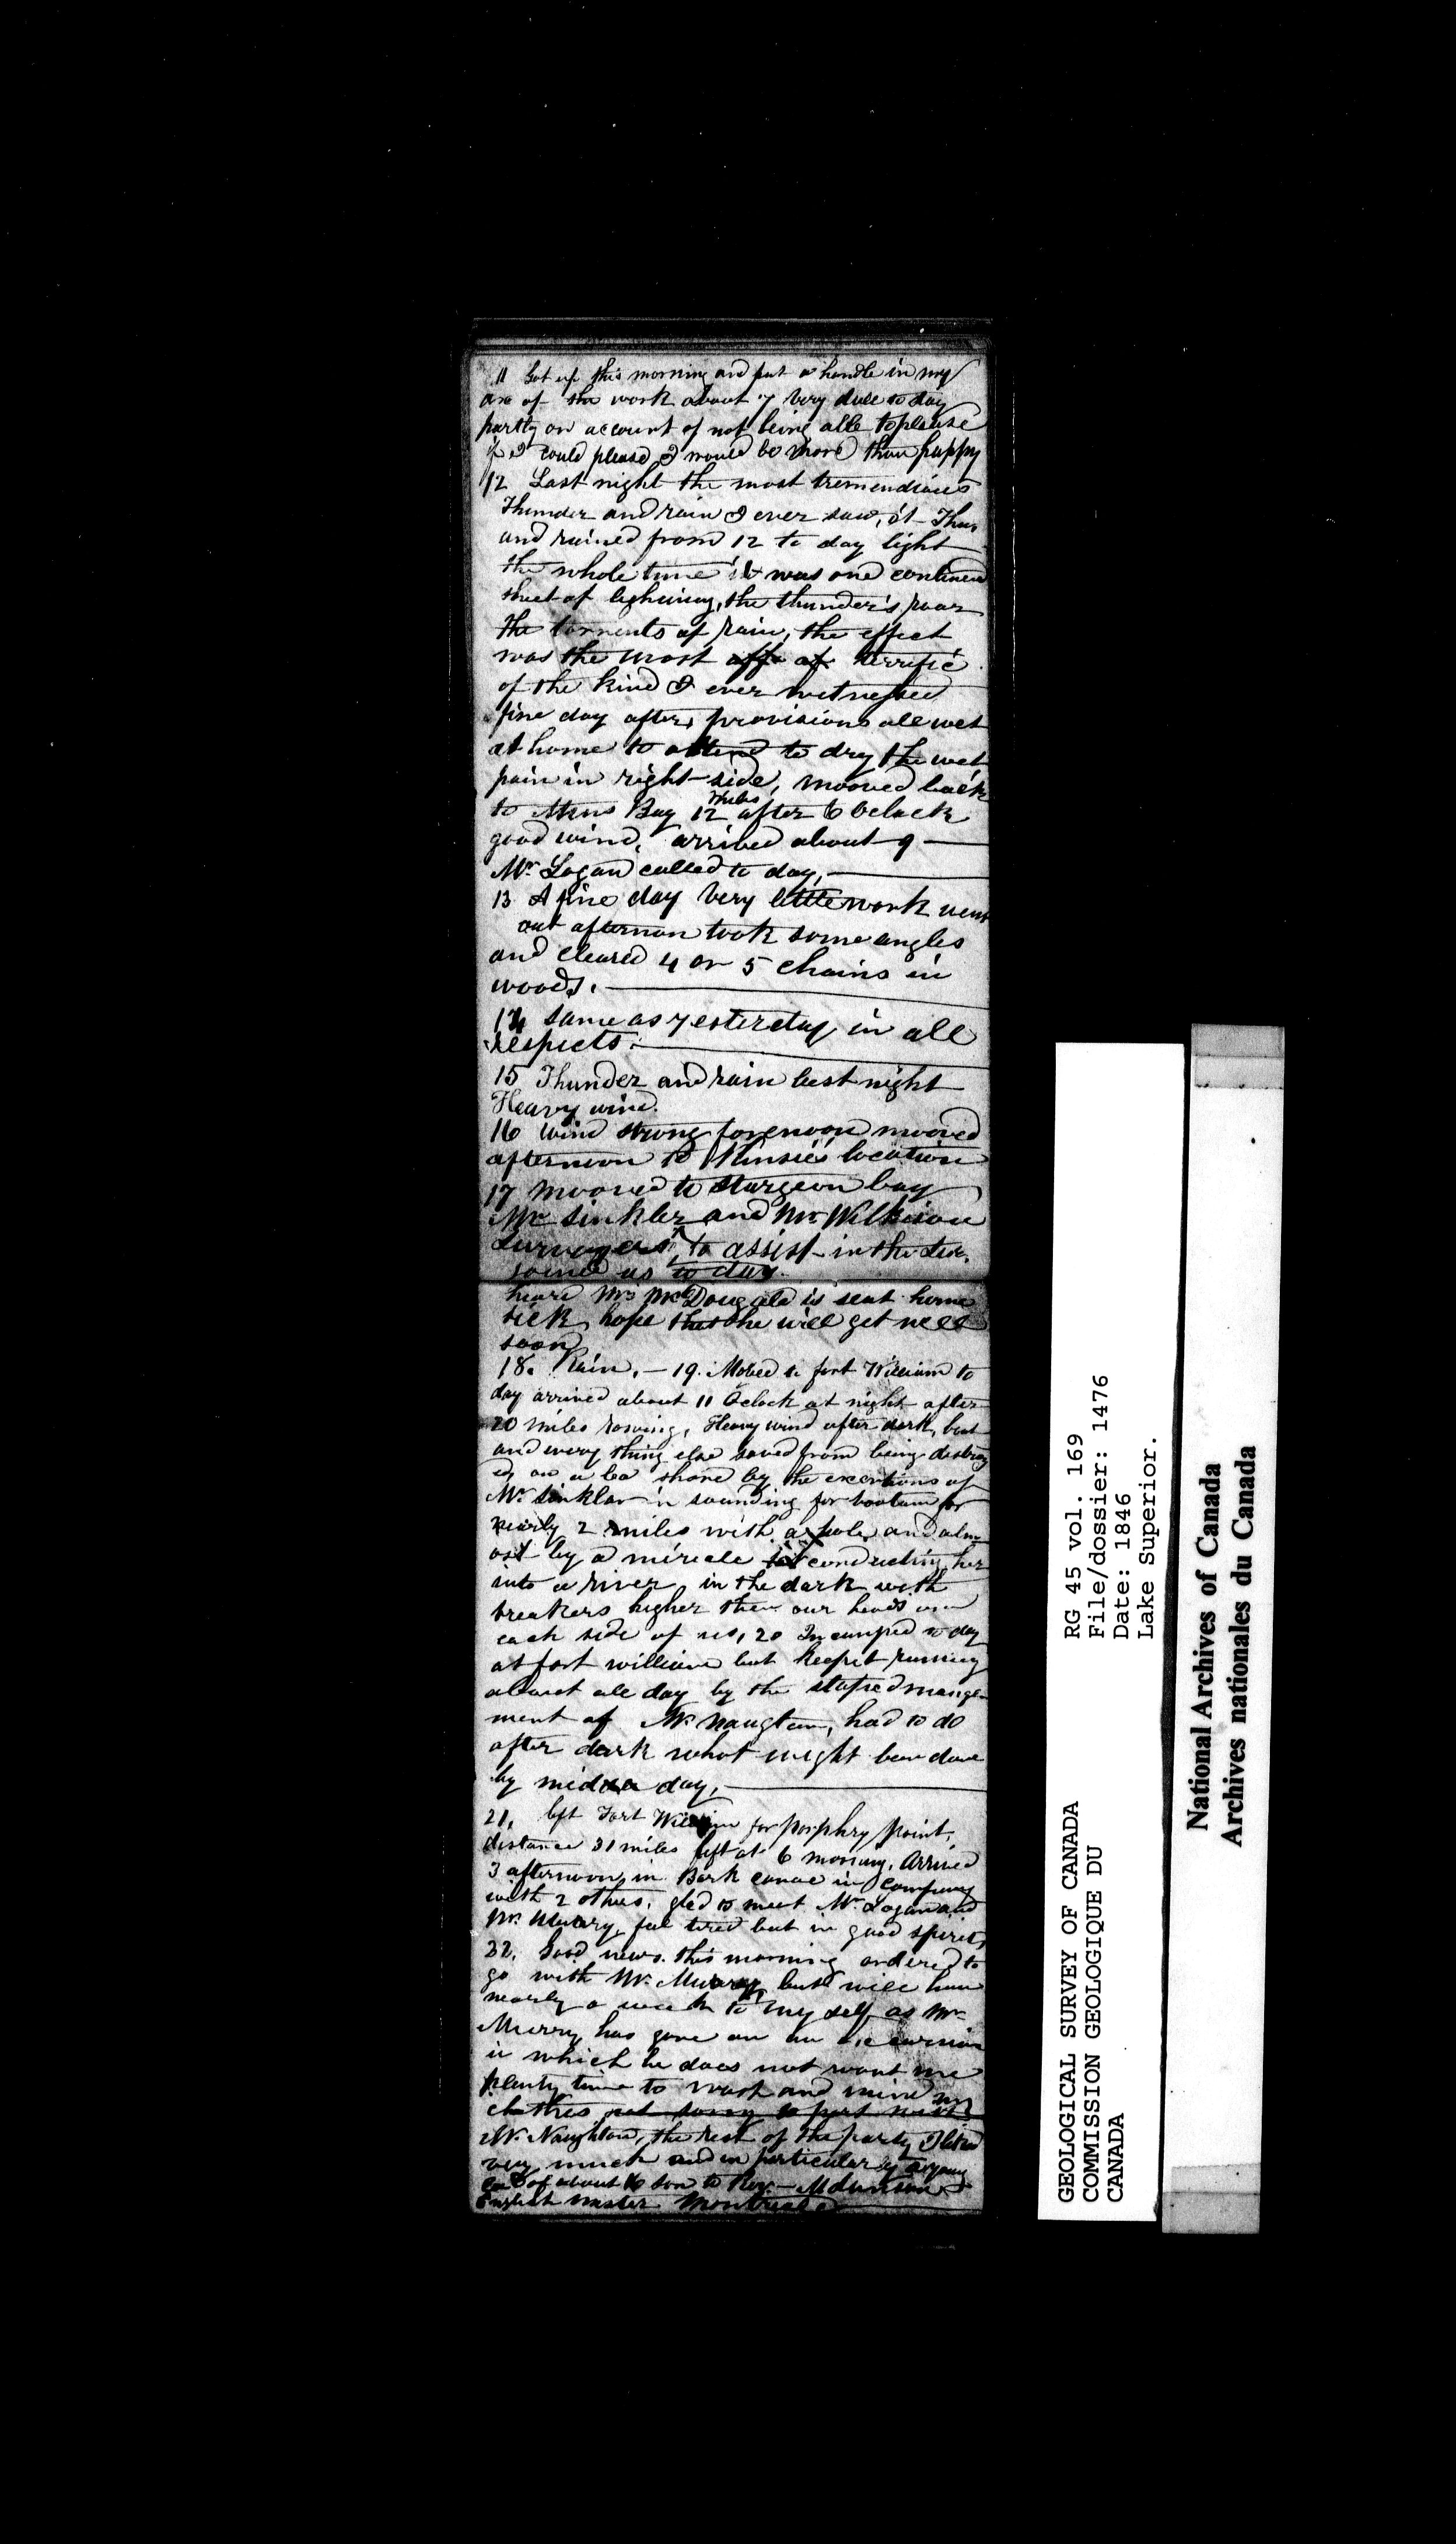 11 Got up this morning and put a handle in my
axe of the work about 7 very dull to day
partly on account of not being able to please
if I could please I would be more than happy
12 Last night the most tremendious
Thunder and rain I ever saw, it Thun
and rained from 12 to day light
the whole time it was one continued
sheet of lightning, the thunder's roar
the torrents of rain, the effect
was the most terrific
of the kind I ever witnessed
fine day after, provisions all wet
at home to attend to dry the wet
pain in right side, mooved back
to Bay 12 miles after 6 oclock
good wind, arrived about 9
Mr. Logan called to day,
13 A fine day very little work went
out afternoon took some angles
and cleared 4 or 5 chains in
woods.
14 same as yesterday in all
respects.
15 Thunder and rain last night
Heavy wind.
16 wind strong forenoon mooved
afternoon to location
17 mooved to sturgeon bay
Mr sinkler and Mr Wilkison
surveyers to assist in the
joined us to day.
heard Mr McDougald is sent home
sick, hope that he will get well
soon
18. Rain. — 19. Moved to fort William to
day arrived about 11 oclock at night after
20 miles rowing, Heavy wind after dark, boat
and every thing else saved from being destroy
ed on a lea shore by the exertions of
Mr. sinklar in sounding for bootum for
nearly 2 miles with a pole, and alm
ost by a miricale conducting her
into a river in the dark with
breakers higher then our heads on
each side of us, 20 Incamped to day
at fort william but keept running
about all day by the stupied mange-
ment of Mc Naugtan, had to do
after dark what might been done
by mid day,
21, left Fort William for porphry point,
distance 31 miles left at 6 morning. Arrived
3 afternoon, in Bark canoe in company
with 2 others, glad to meet Mr. Logan and
Mr. Murry, feel tired but in good spirits,
22, Good news this morning ordered to
go with Mr. Murray, but will have
nearly a week to my self as Mr
Murry has gone on an
in which he does not want me
plenty time to wash and mind my
clothes not sorry to part with
Mc Naughton, the rest of the party I liked
very much and in particular a young
lad of about 16 son to Rev.
English master Montreal
RG 45 vol. 169
File/dossier: 1476
Date: 1846
Lake Superior.
GEOLOGICAL SURVEY OF CANADA
COMMISSION GEOLOGIQUE DU
CANADA
National Archives of Canada
Archives nationales du Canada